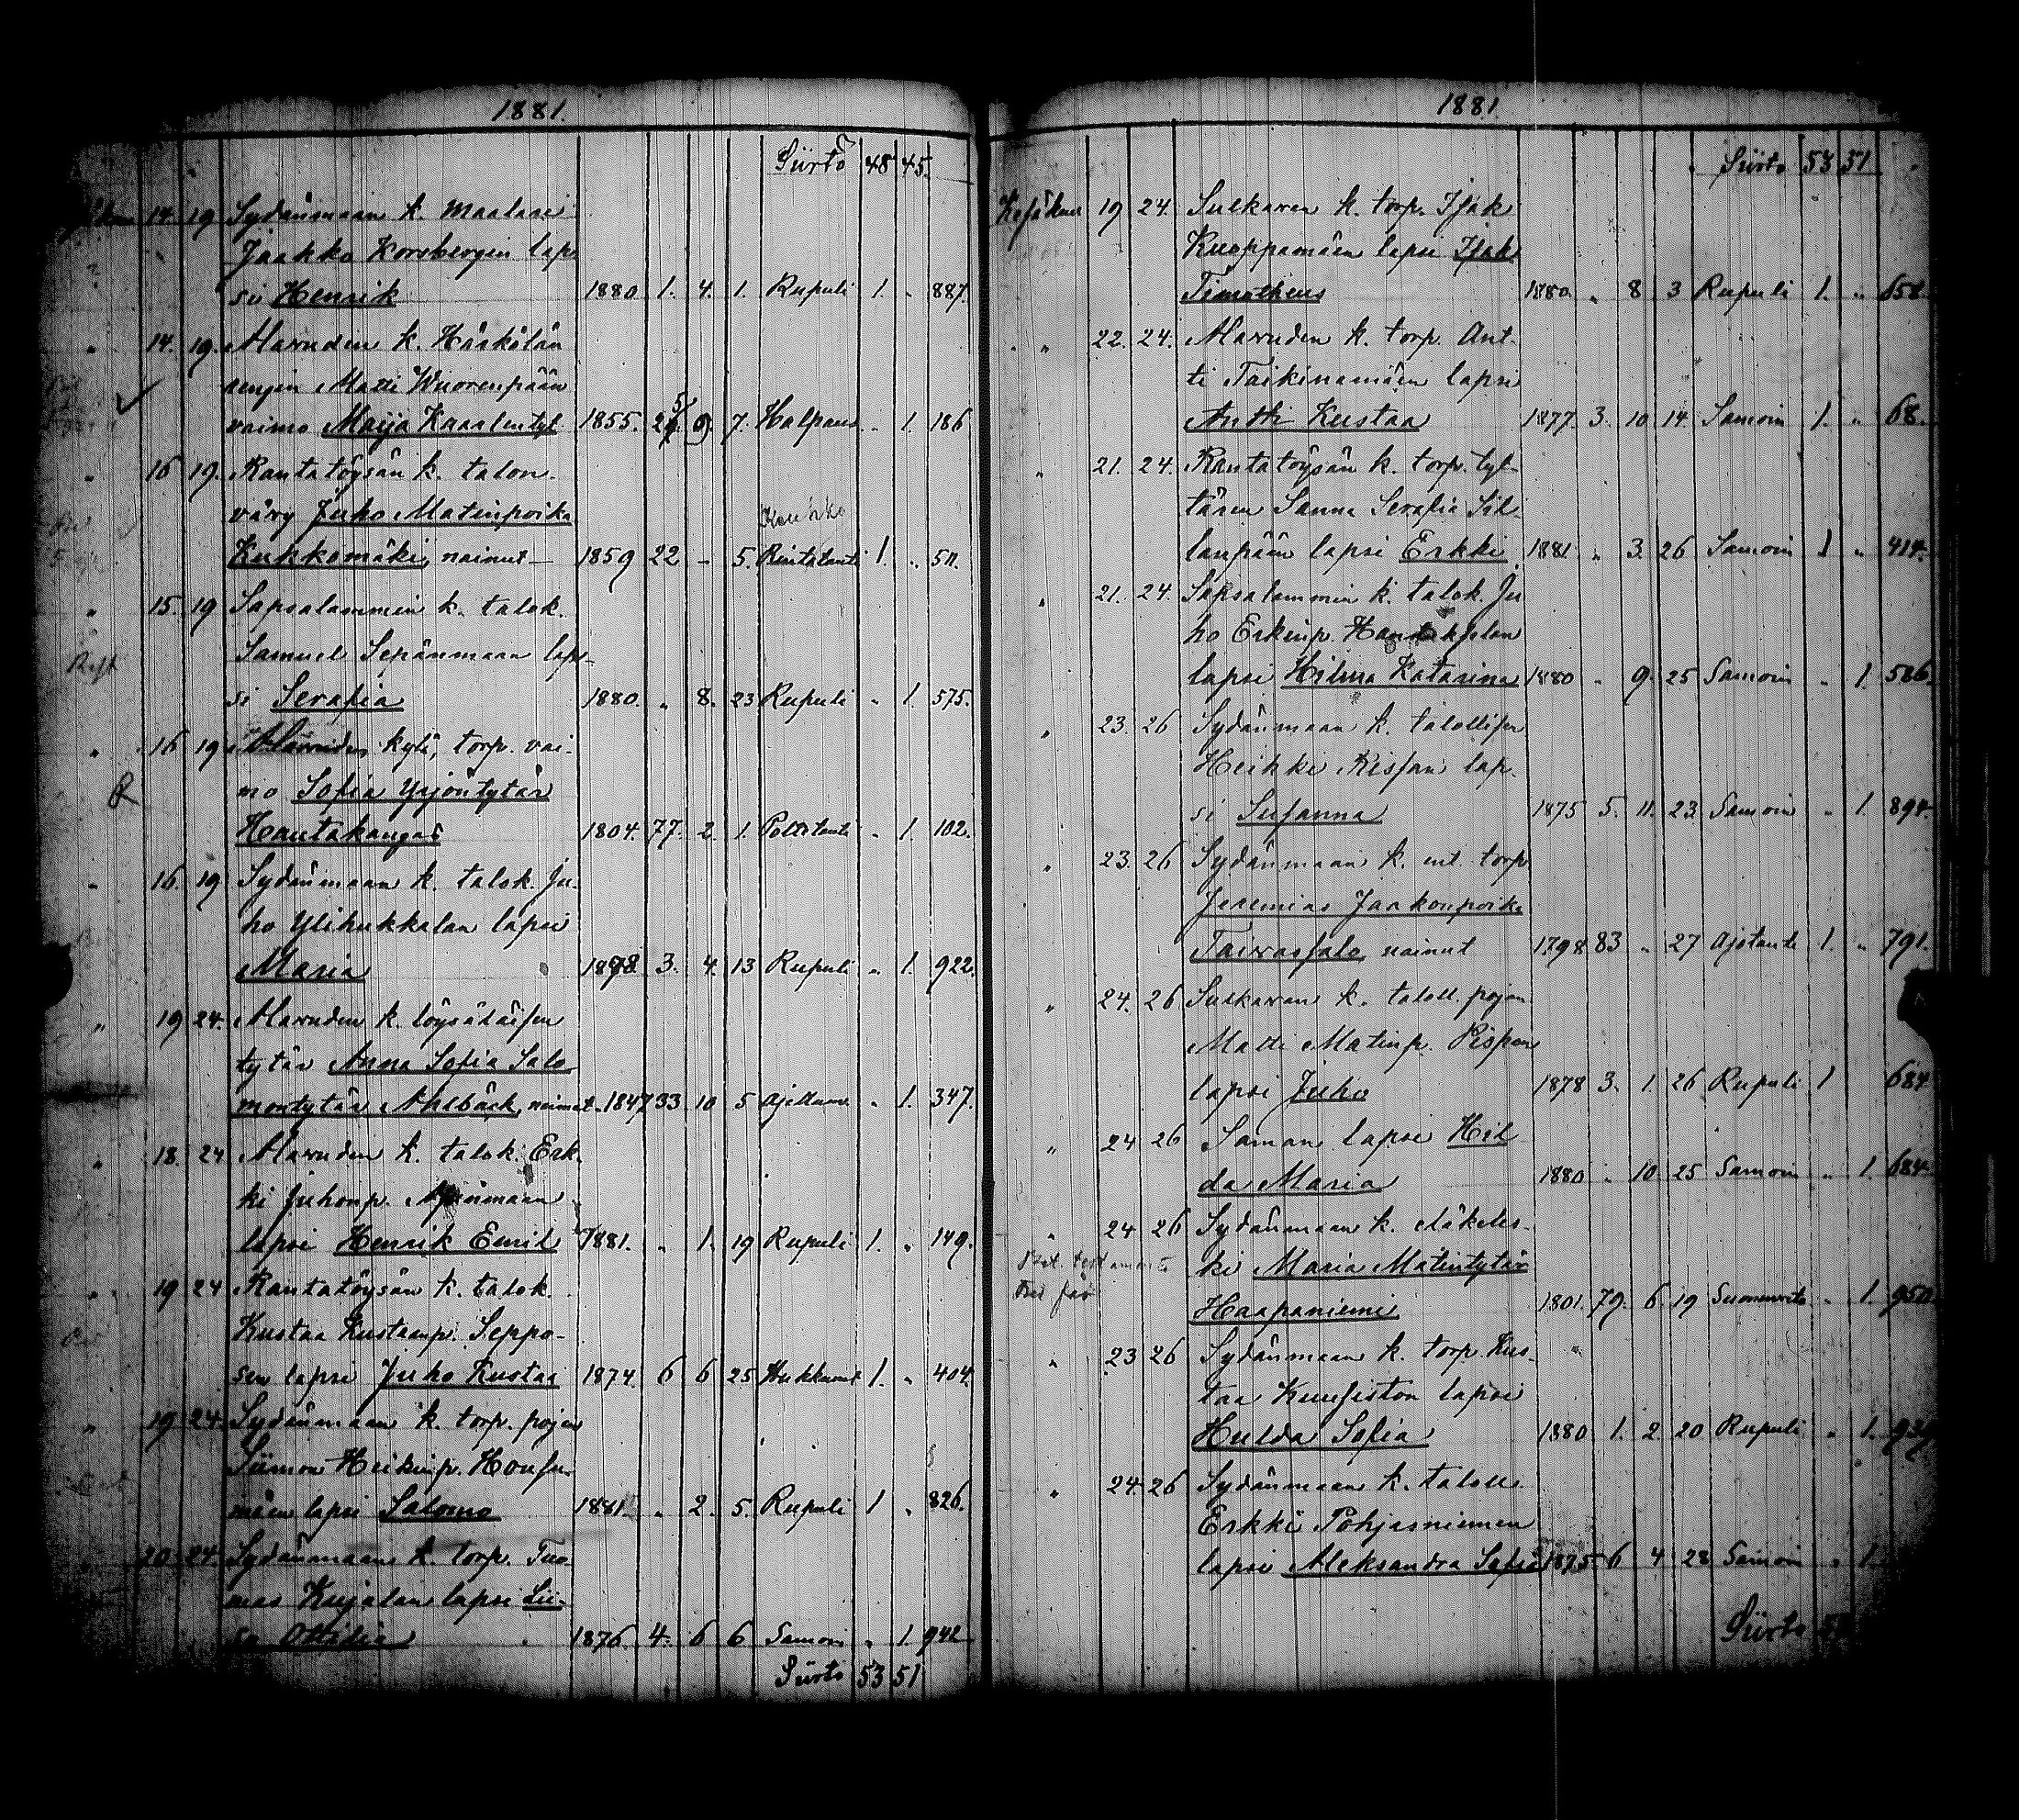 1881.
Siirto 48 45.
14. 19 Sydänmaan k. Maalari
Jaakko Korsbergin lap-
si Henrik 1880 1. 4. 1. Rupuli 1. „ 887.
„ 14. 19. Alavuden k. Härkölän
Matti Wuorenpään
vaimo Maija Kaarlentyt 1855. 25 7. Halpaus „ 1. 186
„ 16 19. Rantatöysän k. talon.
väry Juho Matinpoika
Kukkomäki, nainut 1859 22 – 5. Rintatauti 1. „ 511.
„ 15. 19 Sapsalammin k. talok.
Samuel Sepänmaan lap-
si Serafia 1880. „ 8. 23 Rupuli „ 1. 575.
„ 16 19 Alavuden kylä, torp. vai-
mo Sofia Yrjöntytär
Hautakangas 1804. 77. 2. 1. Polttotauti „ 1. 102.
„ 16. 19. Sydänmaan k. talok. Ju-
ho Ylihukkalan lapsi
Maria 1878 3. 4. 13 Rupuli „ 1. 922.
„ 19 24. Alavuden k. löysäläisen
tytär Anna Sofia Salo-
montytär Ahlbäck, naimat. 1847 33 10 5 „ 1. 347.
„ 18. 24 Alavuden k. talok. Erk-
ki Juhonp.
lapsi Henrik Emil 1881. „ 1. 19 Rupuli 1. „ 149.
„ 19 24 Rantatöysän k. talok.
Kustaa Kustaanp. Seppo-
sen lapsi Juho Kustaa 1874. 6 6 25 1. „ 404.
„ 19 24. Sydänmaan k. torp. pojan
Siimon Heikinp. Honsu-
mäen lapsi Salomo 1881. „ 2. 5. Rupuli 1 „ 826.
„ 20 24 Sydänmaan k. torp. Tuo-
mas Kujalan lapsi Lii-
sa Ottilia 1876. 4. 6 6 Samoin „ 1. 942
Siirto 53 51
1881
Siirto 53 51
Kesäkuu 19 24. Sulkavan k. torp. Isak
Kuoppamäen lapsi Isak
Timotheus 1880. „ 8 3 Rupuli 1. „ 658.
„ 22. 24. Alavuden k. torp. Ant-
ti Taikinamäen lapsi
Antti Kustaa 1877. 3. 10 14 Samoin 1. „ 68.
„ 21. 24. Rantatöysän k. torp. tyt-
tären Sanna Serafia Sil-
lanpään lapsi Erkki 1881 „ 3. 26 Samoin 1 „ 414.
„ 21. 24. Sapsalammin k. talok. Ju
ho Erkinp.
lapsi Hilma Katarina 1880 „ 9. 25 Samoin „ 1. 586.
„ 23. 26 Sydänmaan k. talollisen
Heikki Rissan lap-
si Susanna 1875 5. 11. 23 Samoin „ 1. 894.
„ 23. 26 Sydänmaan k. ent. torp
Jeremias Jaakonpoika
Taivassalo nainut 1798. 83 „ 27 Ajotauti 1. „ 791.
„ 24. 26 Sulkavan k. taloll. pojan
Matti Matinp. Pispan
lapsi Juho 1878 3. 1. 26 Rupuli 1 684
„ 24 26 Saman lapsi Hil-
da Maria 1880 „ 10. 25 Samoin „ 1. 684.
„ 24 26 Sydänmaan k. eläkeles-
ki Maria Matintytär
Haapaniemi 1801. 79. 6. 19 „ 1. 950.
„ 23 26 Sydänmaan k. torp. Kus-
taa Kuusiston lapsi
Hulda Sofia 1880 1. 2. 20 Rupuli „ 1.
„ 24 26 Sydänmaan k. taloll.
Erkki Pohjasniemen
lapsi Aleksandra Sofia 1875 6 4 28 Samoin „ 1.
Siirto